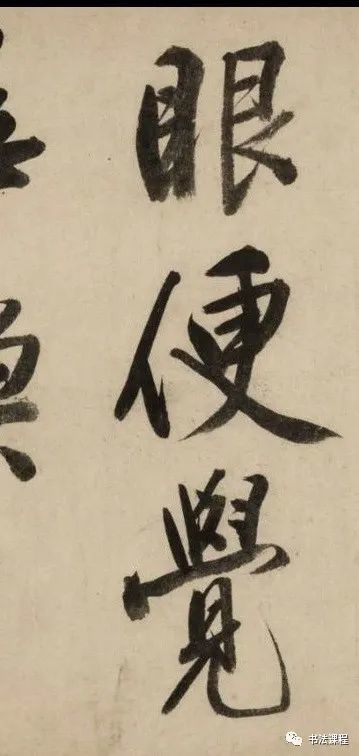 眼便覺
书法课程